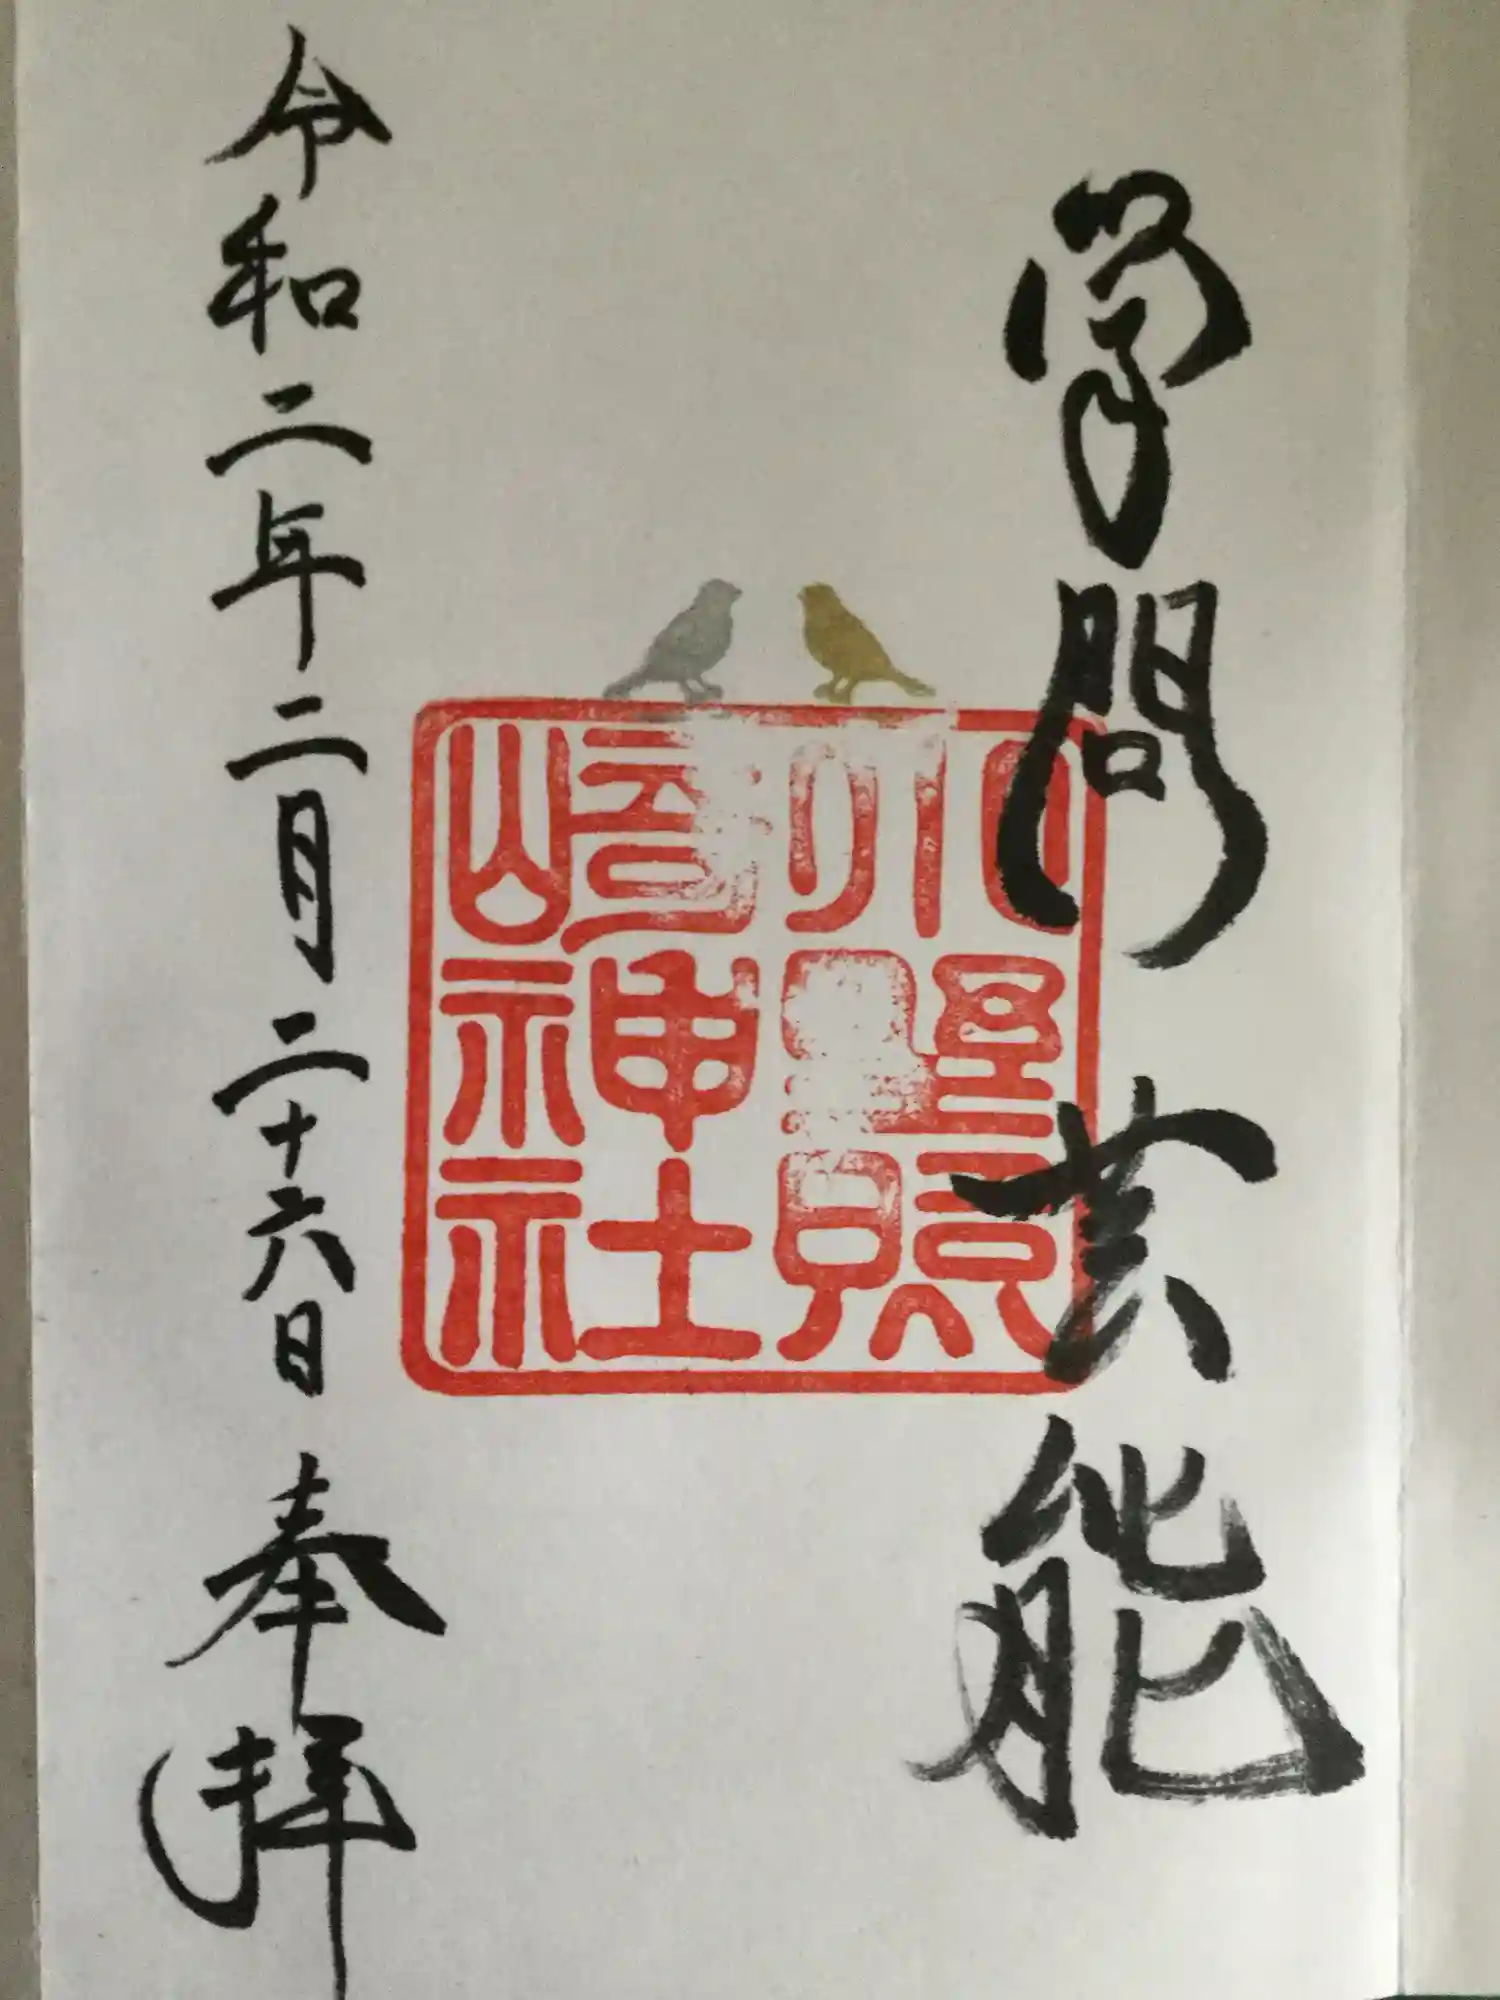 学問芸能
小野照
崎神社
令和二年二月二十六日奉拝